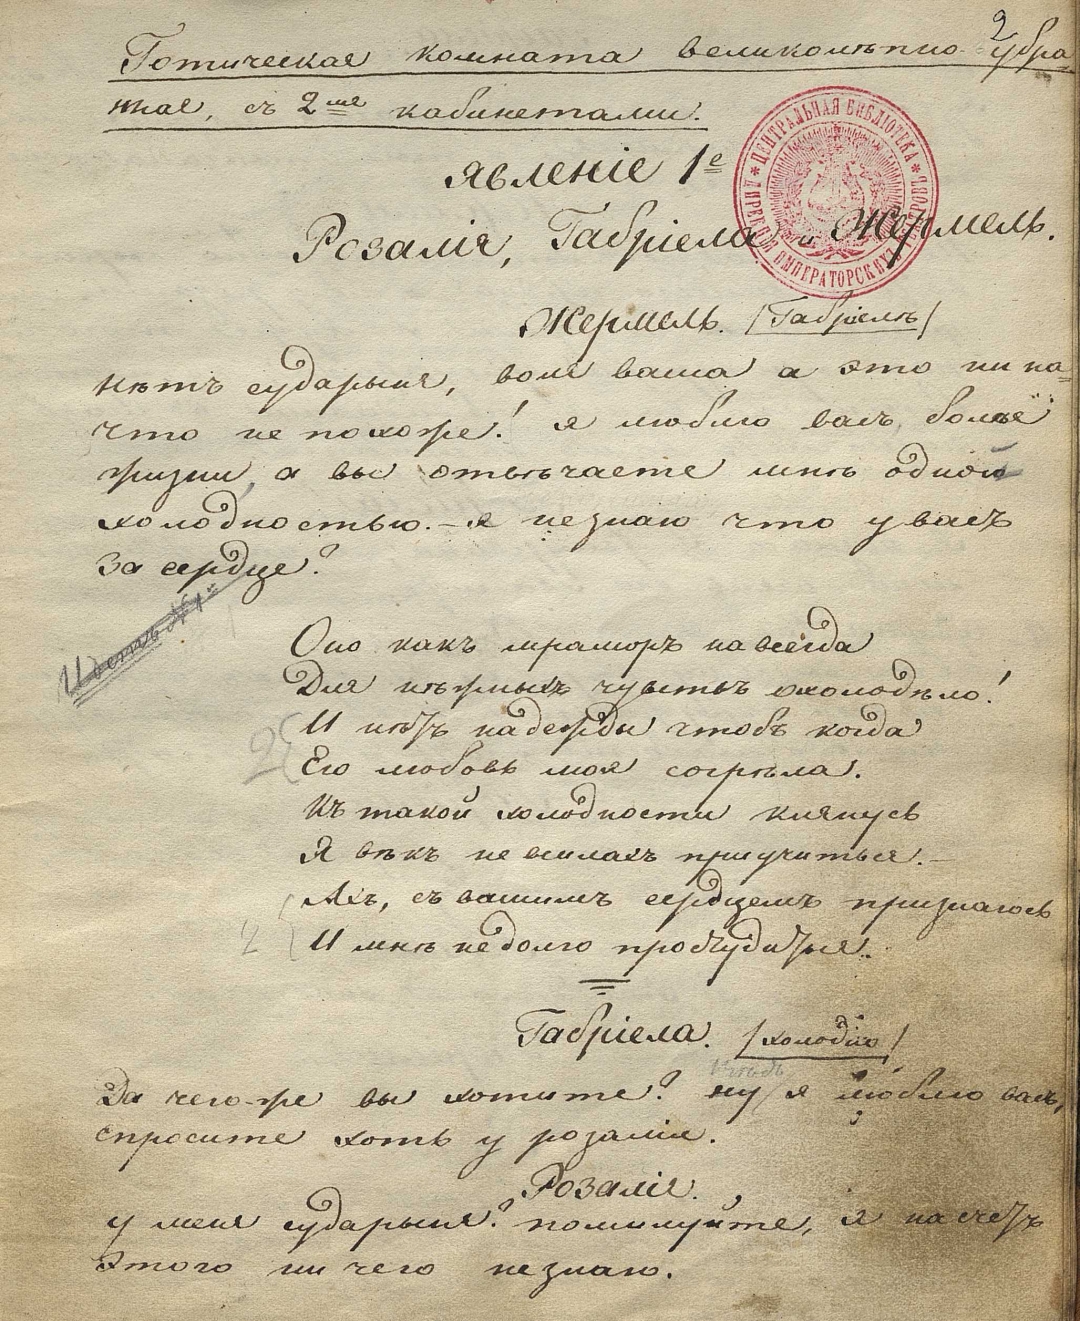 2
Готическая комната великолѣпно убра-
ная, съ 2мя кабинетами.
явленіе 1е
Розалія, Габріела и Жермель.
ЦЕНТРАЛЬНАЯ БИБЛІОТЕКА * ИМПЕРАТОРСКИХЪ
Жермель. /Габріелѣ/
нѣтъ сударыня, воля ваша а это ни на
что не похоже! я люблю васъ болѣе
жизни, а вы отвѣчаете мнѣ одной
холодностью. – я незнаю что у васъ
за сердце?
Оно какъ мраморъ навсегда
Для нѣжныхъ чувствъ охолодѣло!
И нѣтъ надежды чтобъ когда
2{
Его любовь моя согрѣла.
Къ такой холодности клянусь
Я вѣкъ не всилахъ приучиться. –
Ахъ, съ вашимъ сердцемъ признаюсь
2 {
И мнѣ недолго простудиться.
Габріела. /холодно/
Да чего-же вы хотите? ну я люблю васъ,
спросите хоть у розаліи.
Розалія.
у меня сударыня? помилуйте, я насчетъ
этого ни чего незнаю.